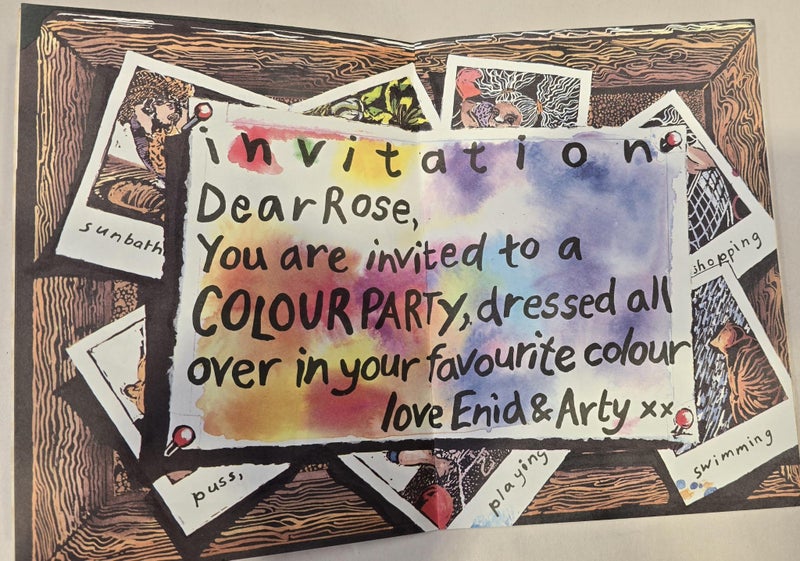 invitation
Dear Rose,
You are invited to a
COLOUR PARTY, dressed all
over in your favourite colour
love Enid & Arty xx
sunbath
shopping
puss,
playing
swimming